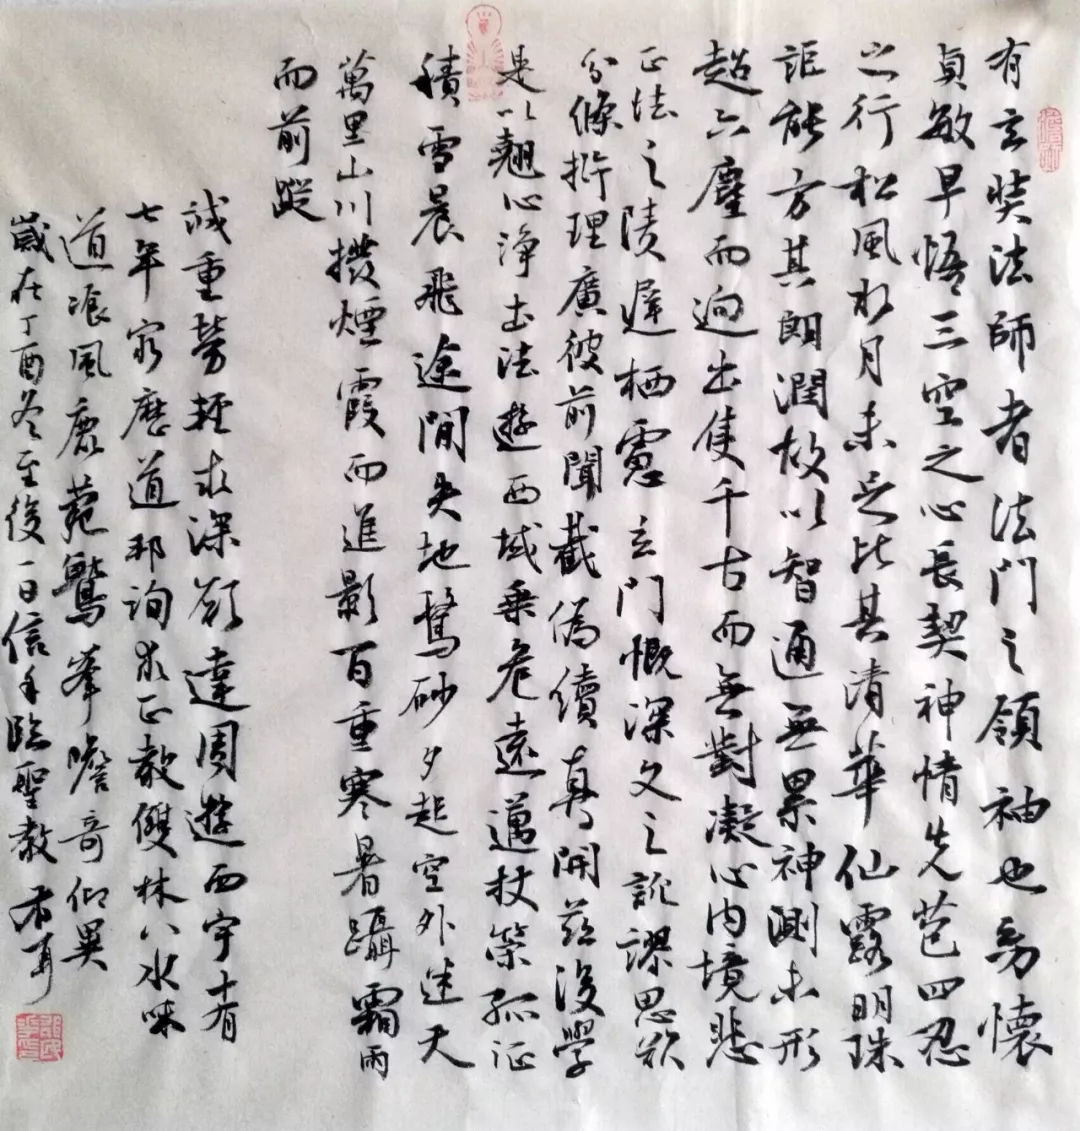 有玄奘法師者法門之領袖也幼懷
貞敏早悟三空之心長契神情先苞四忍
之行松風水月未足比其清華仙露明珠
詎能方其朗潤故以智通無累神測未形
超六塵而迥出隻千古而無對凝心內境悲
正法之陵遲栖慮玄門慨深文之訛謬思欲
分條析理廣彼前聞截偽續真開茲後學
是以翹心淨土法遊西域乘危遠邁杖策孤征
積雪晨飛途間失地驚砂夕起空外迷天
萬里山川撥煙霞而進影百重寒暑躡霜雨
而前蹤
誠重勞輕求深願達周遊西宇十有
七年窮歷道邦詢求正教雙林八水味
道飡風鹿菀鷲峯瞻奇仰異
歲在丁酉冬至後一日信手臨聖教